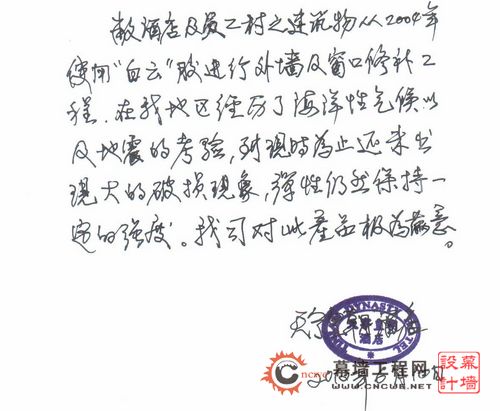 敝酒店及员工村之建筑物从2004年
使用"白云"胶进行外墙及窗口修补工
程。在我地区经历了海洋性气候以
及地震的考验,到现时为止还未出
现大的破损现象,弹性仍然保持一
定的强度。我司对此產品极为满意。
DYNASTY HOTEL
酒店
幕墙工程网
WWW.CNCWE.NET
幕墙
设计